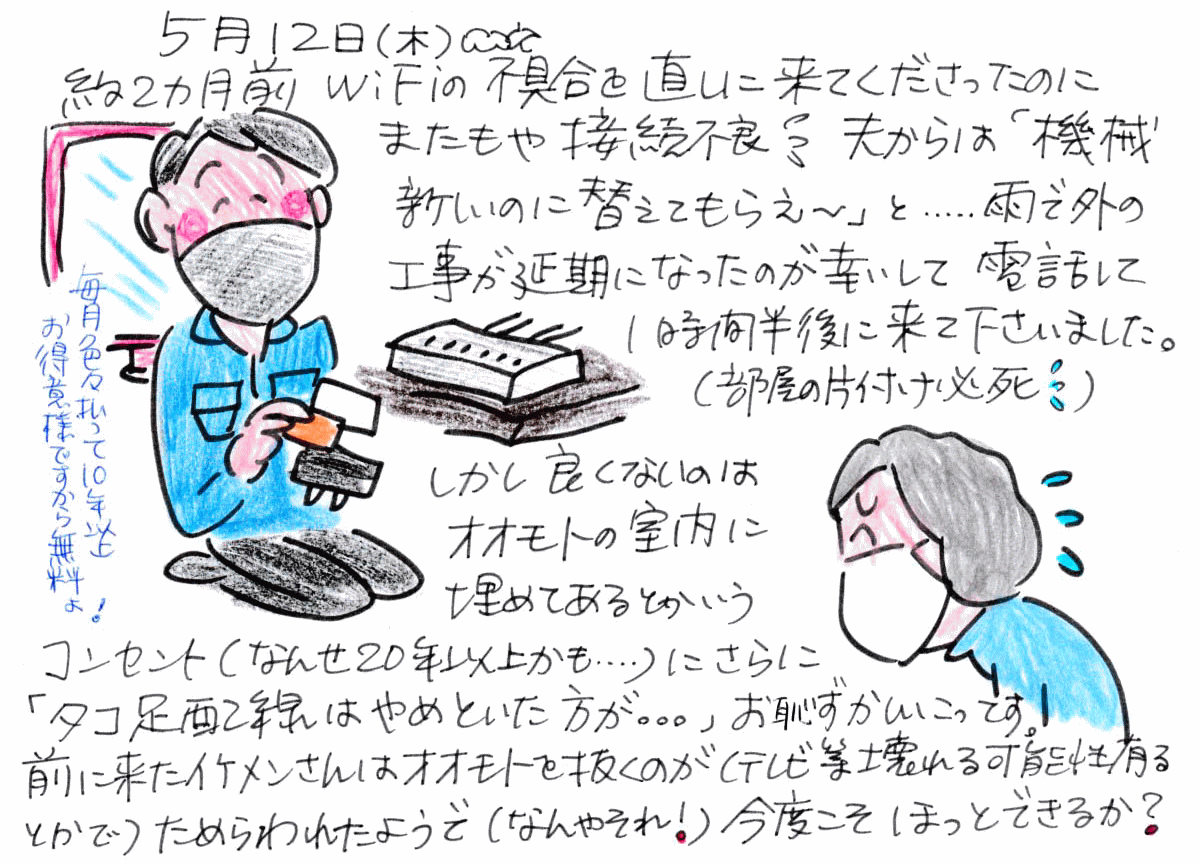 5月12日(木)
約2カ月前 WiFiの不具合を直しに来てくださったのに
またもや接続不良? 夫からは「機械
新しいのに替えてもらえ〜」と.....雨で外の
工事が延期になったのが幸いして 電話して
1時間半後に来て下さいました。
(部屋の片付け必死)
しかし良くないのは
オオモトの室内に
埋めてあるとかいう
コンセント(なんせ20年以上かも....)にさらに
「タコ足配線はやめといた方が。。。」お恥ずかしいこってす。
前に来たイケメンさんはオオモトを抜くのが(テレビ等壊れる可能性有る
とかで)ためらわれたようで(なんやそれ!)今度こそほっとできるか?
毎月色々払って10年以上
お得意様ですから無料よ!